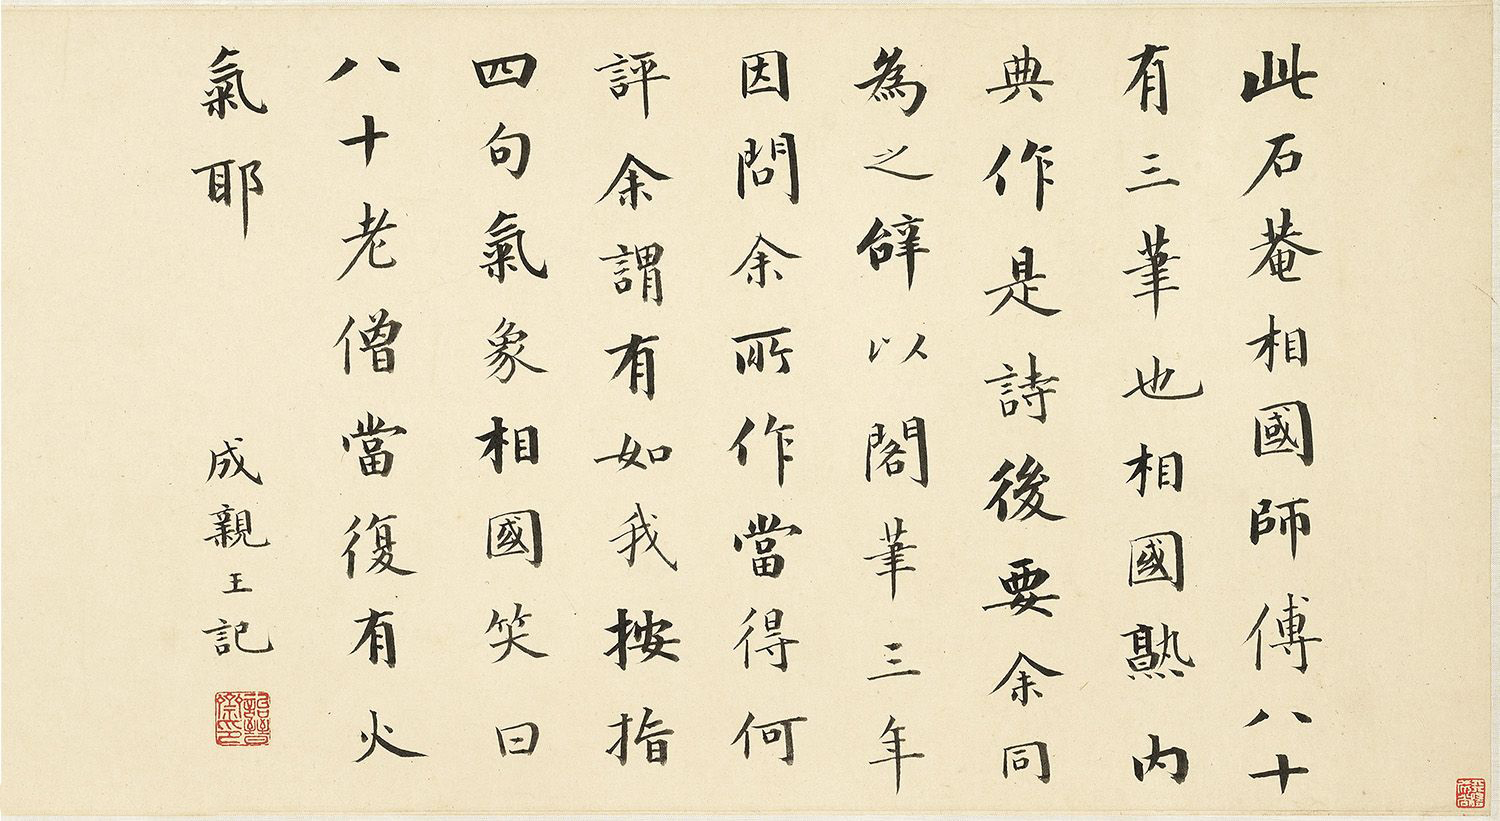 此石菴相國師傅八十
有三筆也相國熟內
典作是詩後要余同
為之辭以閣筆三年
因問余所作當得何
評余謂有如我按指
四句氣象相國笑曰
八十老僧當復有火
氣耶
成親王記
詒晉
齋印